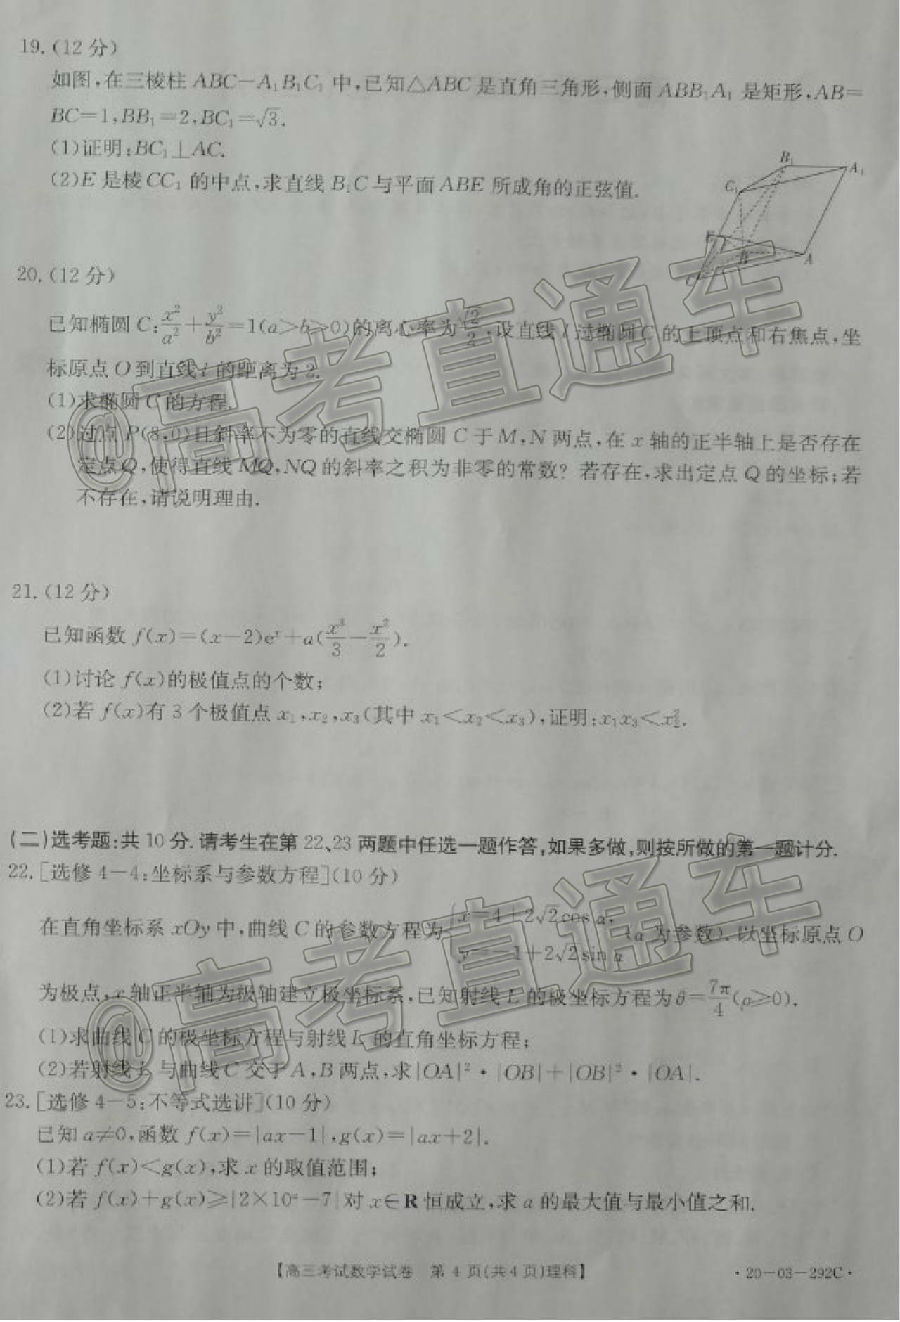 19.(12分)
如图,在三棱柱ABC-A₁B₁C₁中,已知△ABC是直角三角形,侧面ABB₁A₁是矩形,AB=
BC=1,BB₁=2,BC₁=√3.
(1)证明:BC₁⊥AC.
(2)E是棱CC₁的中点,求直线B₁C与平面ABE所成角的正弦值.
B₁
A₁
C₁
E
B
A
C
20.(12分)
已知椭圆C:x²/a²+y²/b²=1(a>b>0)的离心率为√2/2,设直线l过椭圆C的上顶点和右焦点,坐
标原点O到直线l的距离为2.
(1)求椭圆C的方程.
(2)过点P(8,0)且斜率不为零的直线交椭圆C于M,N两点,在x轴的正半轴上是否存在
定点Q,使得直线MQ,NQ的斜率之积为非零的常数?若存在,求出定点Q的坐标;若
不存在,请说明理由.
21.(12分)
已知函数f(x)=(x-2)eˣ+a(x³/3-x²/2).
(1)讨论f(x)的极值点的个数;
(2)若f(x)有3个极值点x₁,x₂,x₃(其中x₁<x₂<x₃),证明:x₁x₃<x₂².
(二)选考题:共10分.请考生在第22、23两题中任选一题作答,如果多做,则按所做的第一题计分.
22.[选修4-4:坐标系与参数方程](10分)
在直角坐标系xOy中,曲线C的参数方程为{x=4+2√2cos α, y=-1+2√2sin α (α为参数).以坐标原点O
为极点,x轴正半轴为极轴建立极坐标系,已知射线L的极坐标方程为θ=7π/4(ρ≥0).
(1)求曲线C的极坐标方程与射线L的直角坐标方程;
(2)若射线L与曲线C交于A,B两点,求|OA|²·|OB|+|OB|²·|OA|.
23.[选修4-5:不等式选讲](10分)
已知a≠0,函数f(x)=|ax-1|,g(x)=|ax+2|.
(1)若f(x)<g(x),求x的取值范围;
(2)若f(x)+g(x)≥|2×10ᵃ-7|对x∈R恒成立,求a的最大值与最小值之和.
【高三考试数学试卷 第4页(共4页)理科】
·20-03-292C·
@高考直通车
@高考直通车